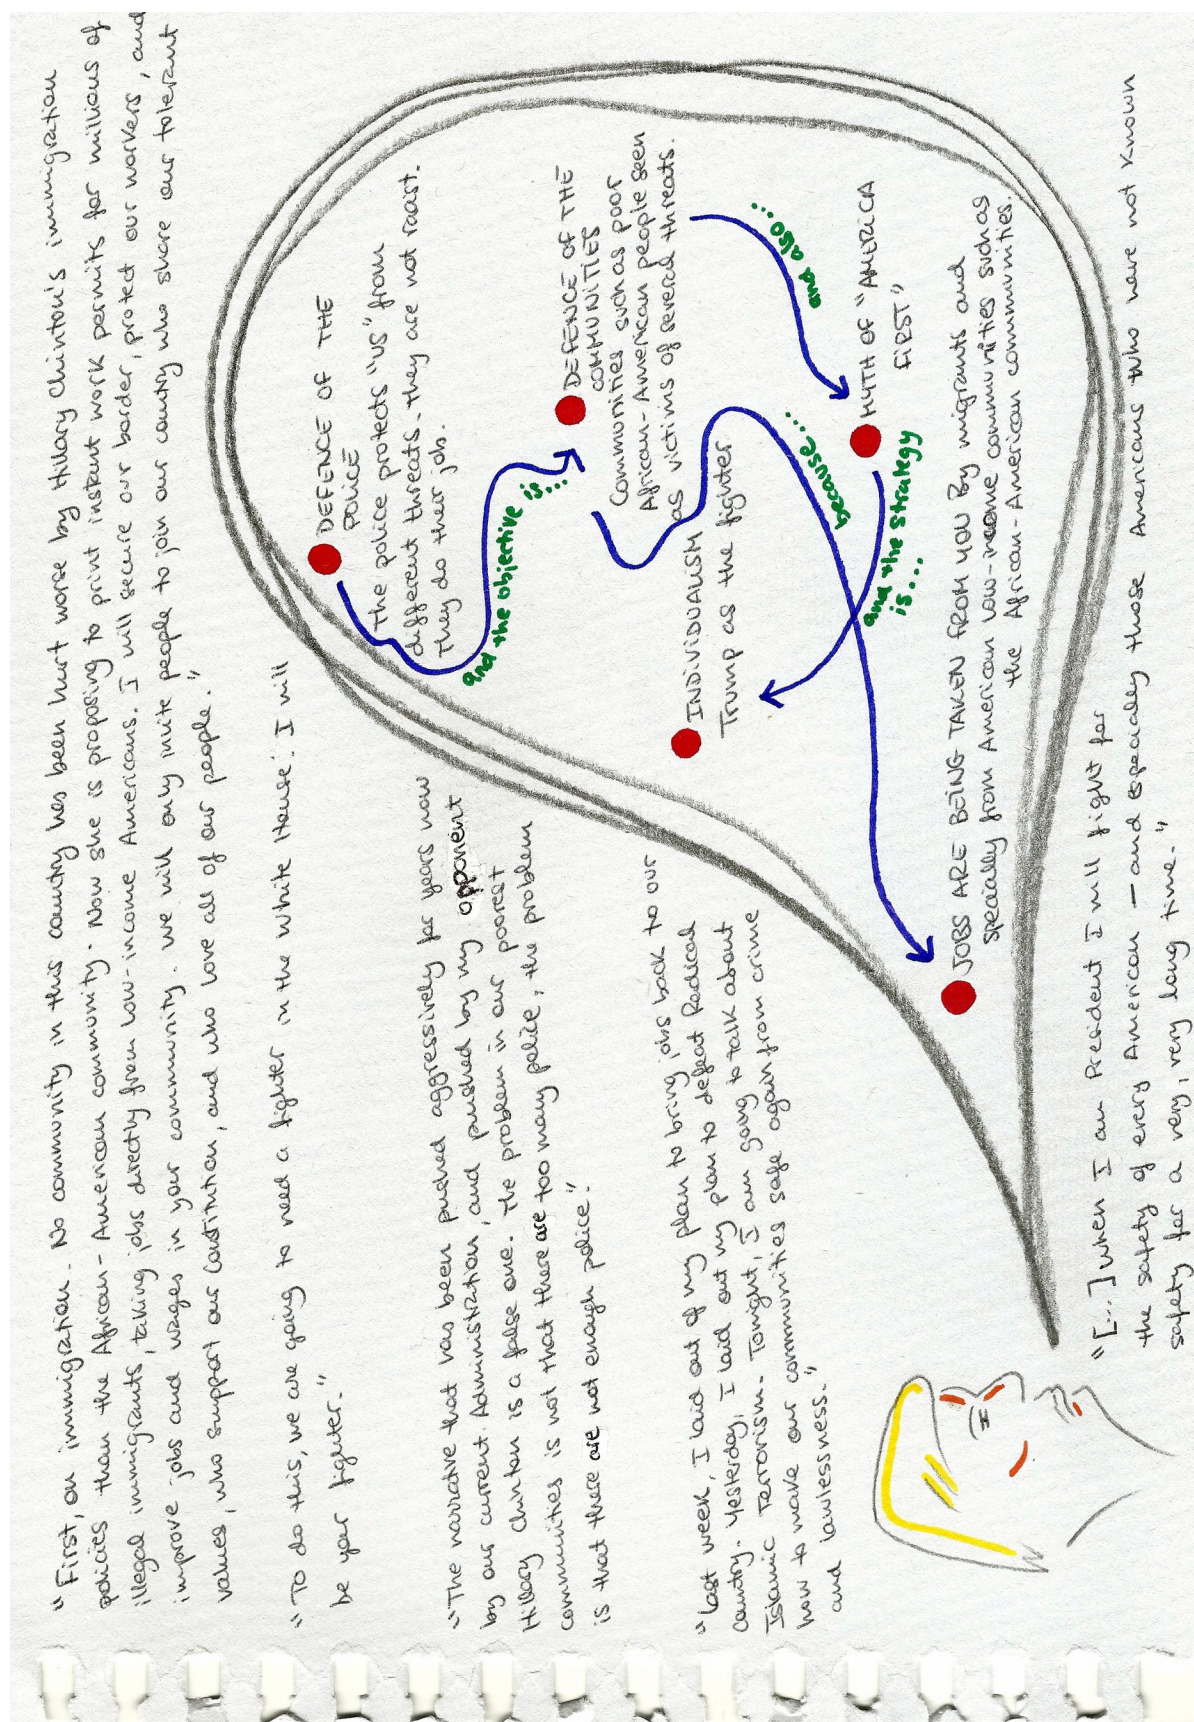 "First, on immigration. No community in this country has been hurt worse by Hillary Clinton's immigration
policies than the African-American community. Now she is proposing to print instant work permits for millions of
illegal immigrants, taking jobs directly from low-income Americans. I will secure our border, protect our workers, and
improve jobs and wages in your community. We will only invite people to join our country who share our tolerant
values, who support our Constitution, and who love all of our people."
"To do this, we are going to need a fighter in the White House. I will
be your fighter."
"The narrative that has been pushed aggressively for years now
by our current Administration, and pushed by my opponent
Hillary Clinton is a false one. The problem in our poorest
communities is not that there are too many police, the problem
is that there are not enough police."
"Last week, I laid out of my plan to bring jobs back to our
country. Yesterday, I laid out my plan to defeat Radical
Islamic Terrorism. Tonight, I am going to talk about
how to make our communities safe again from crime
and lawlessness."
DEFENCE OF THE
POLICE
The police protects "US" from
different threats. They are not racist.
They do their job.
and the objective is...
DEFENCE OF THE
COMMUNITIES
Communities such as poor
African-American people seen
as victims of several threats.
and also...
INDIVIDUALISM
Trump as the fighter
because...
MYTH OF "AMERICA
FIRST"
and the strategy
is....
JOBS ARE BEING TAKEN FROM YOU By migrants and
specially from American low-income communities such as
the African-American communities.
"[...] when I am President I will fight for
the safety of every American – and especially those Americans who have not known
safety for a very, very long time."